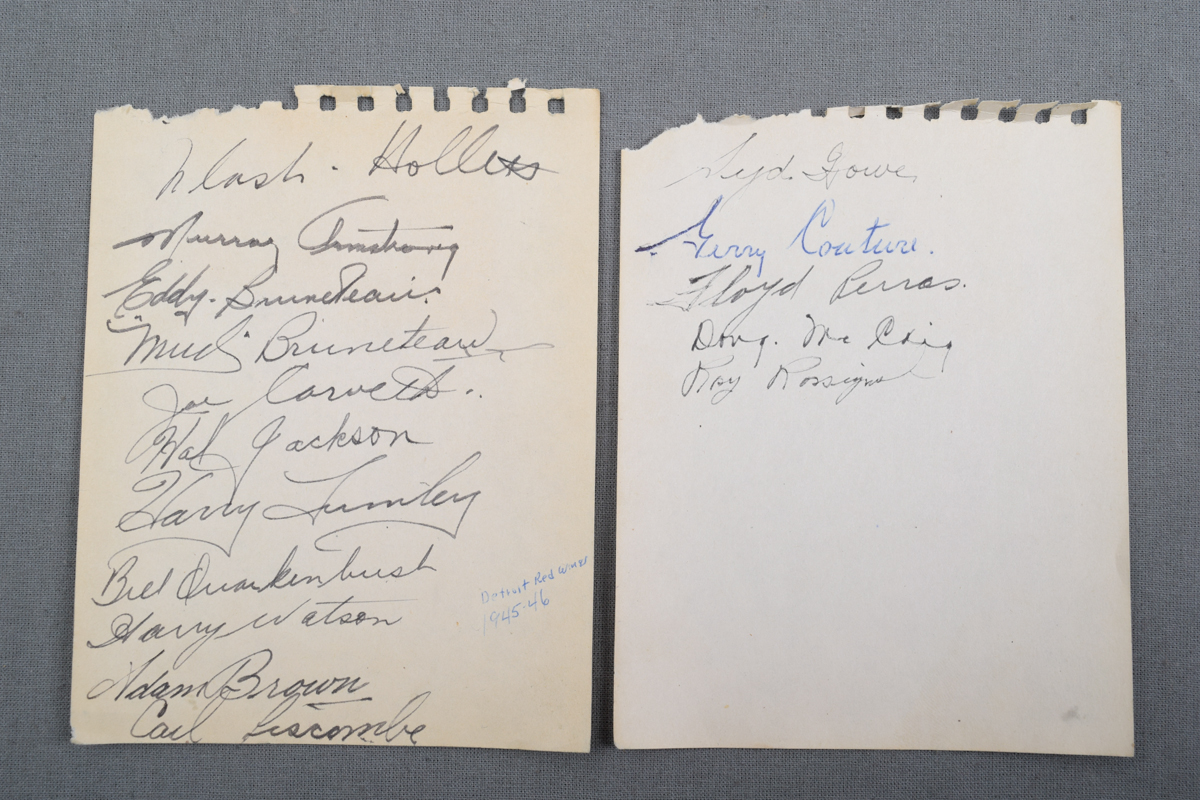 Flash - Hollett
Murray Armstrong
Eddy. Bruneteau.
"Mud" Bruneteau
Joe Carveth.
Hal Jackson
Harry Lumley
Bill Quackenbush
Harry Watson
Adam Brown
Carl Liscombe
Detroit Red Wings
1945-46
Syd. Howe
Gerry Couture.
Floyd Perras.
Doug. Mc Caig
Roy Rossignol